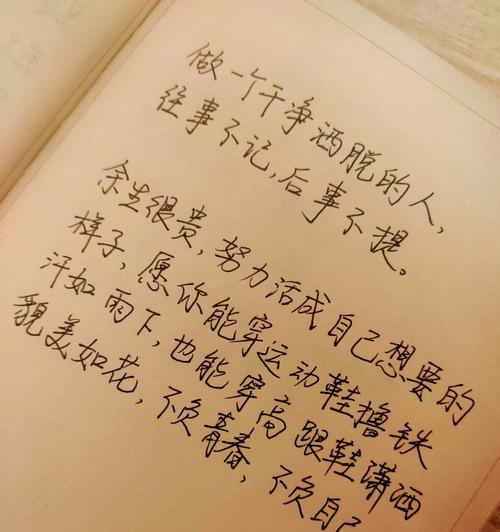 做一个干净洒脱的人,
往事不记,后事不提。
余生很贵,努力活成自己想要的
样子,愿你能穿运动鞋撸铁
汗如雨下,也能穿高跟鞋潇洒
貌美如花,不负青春,不负自己